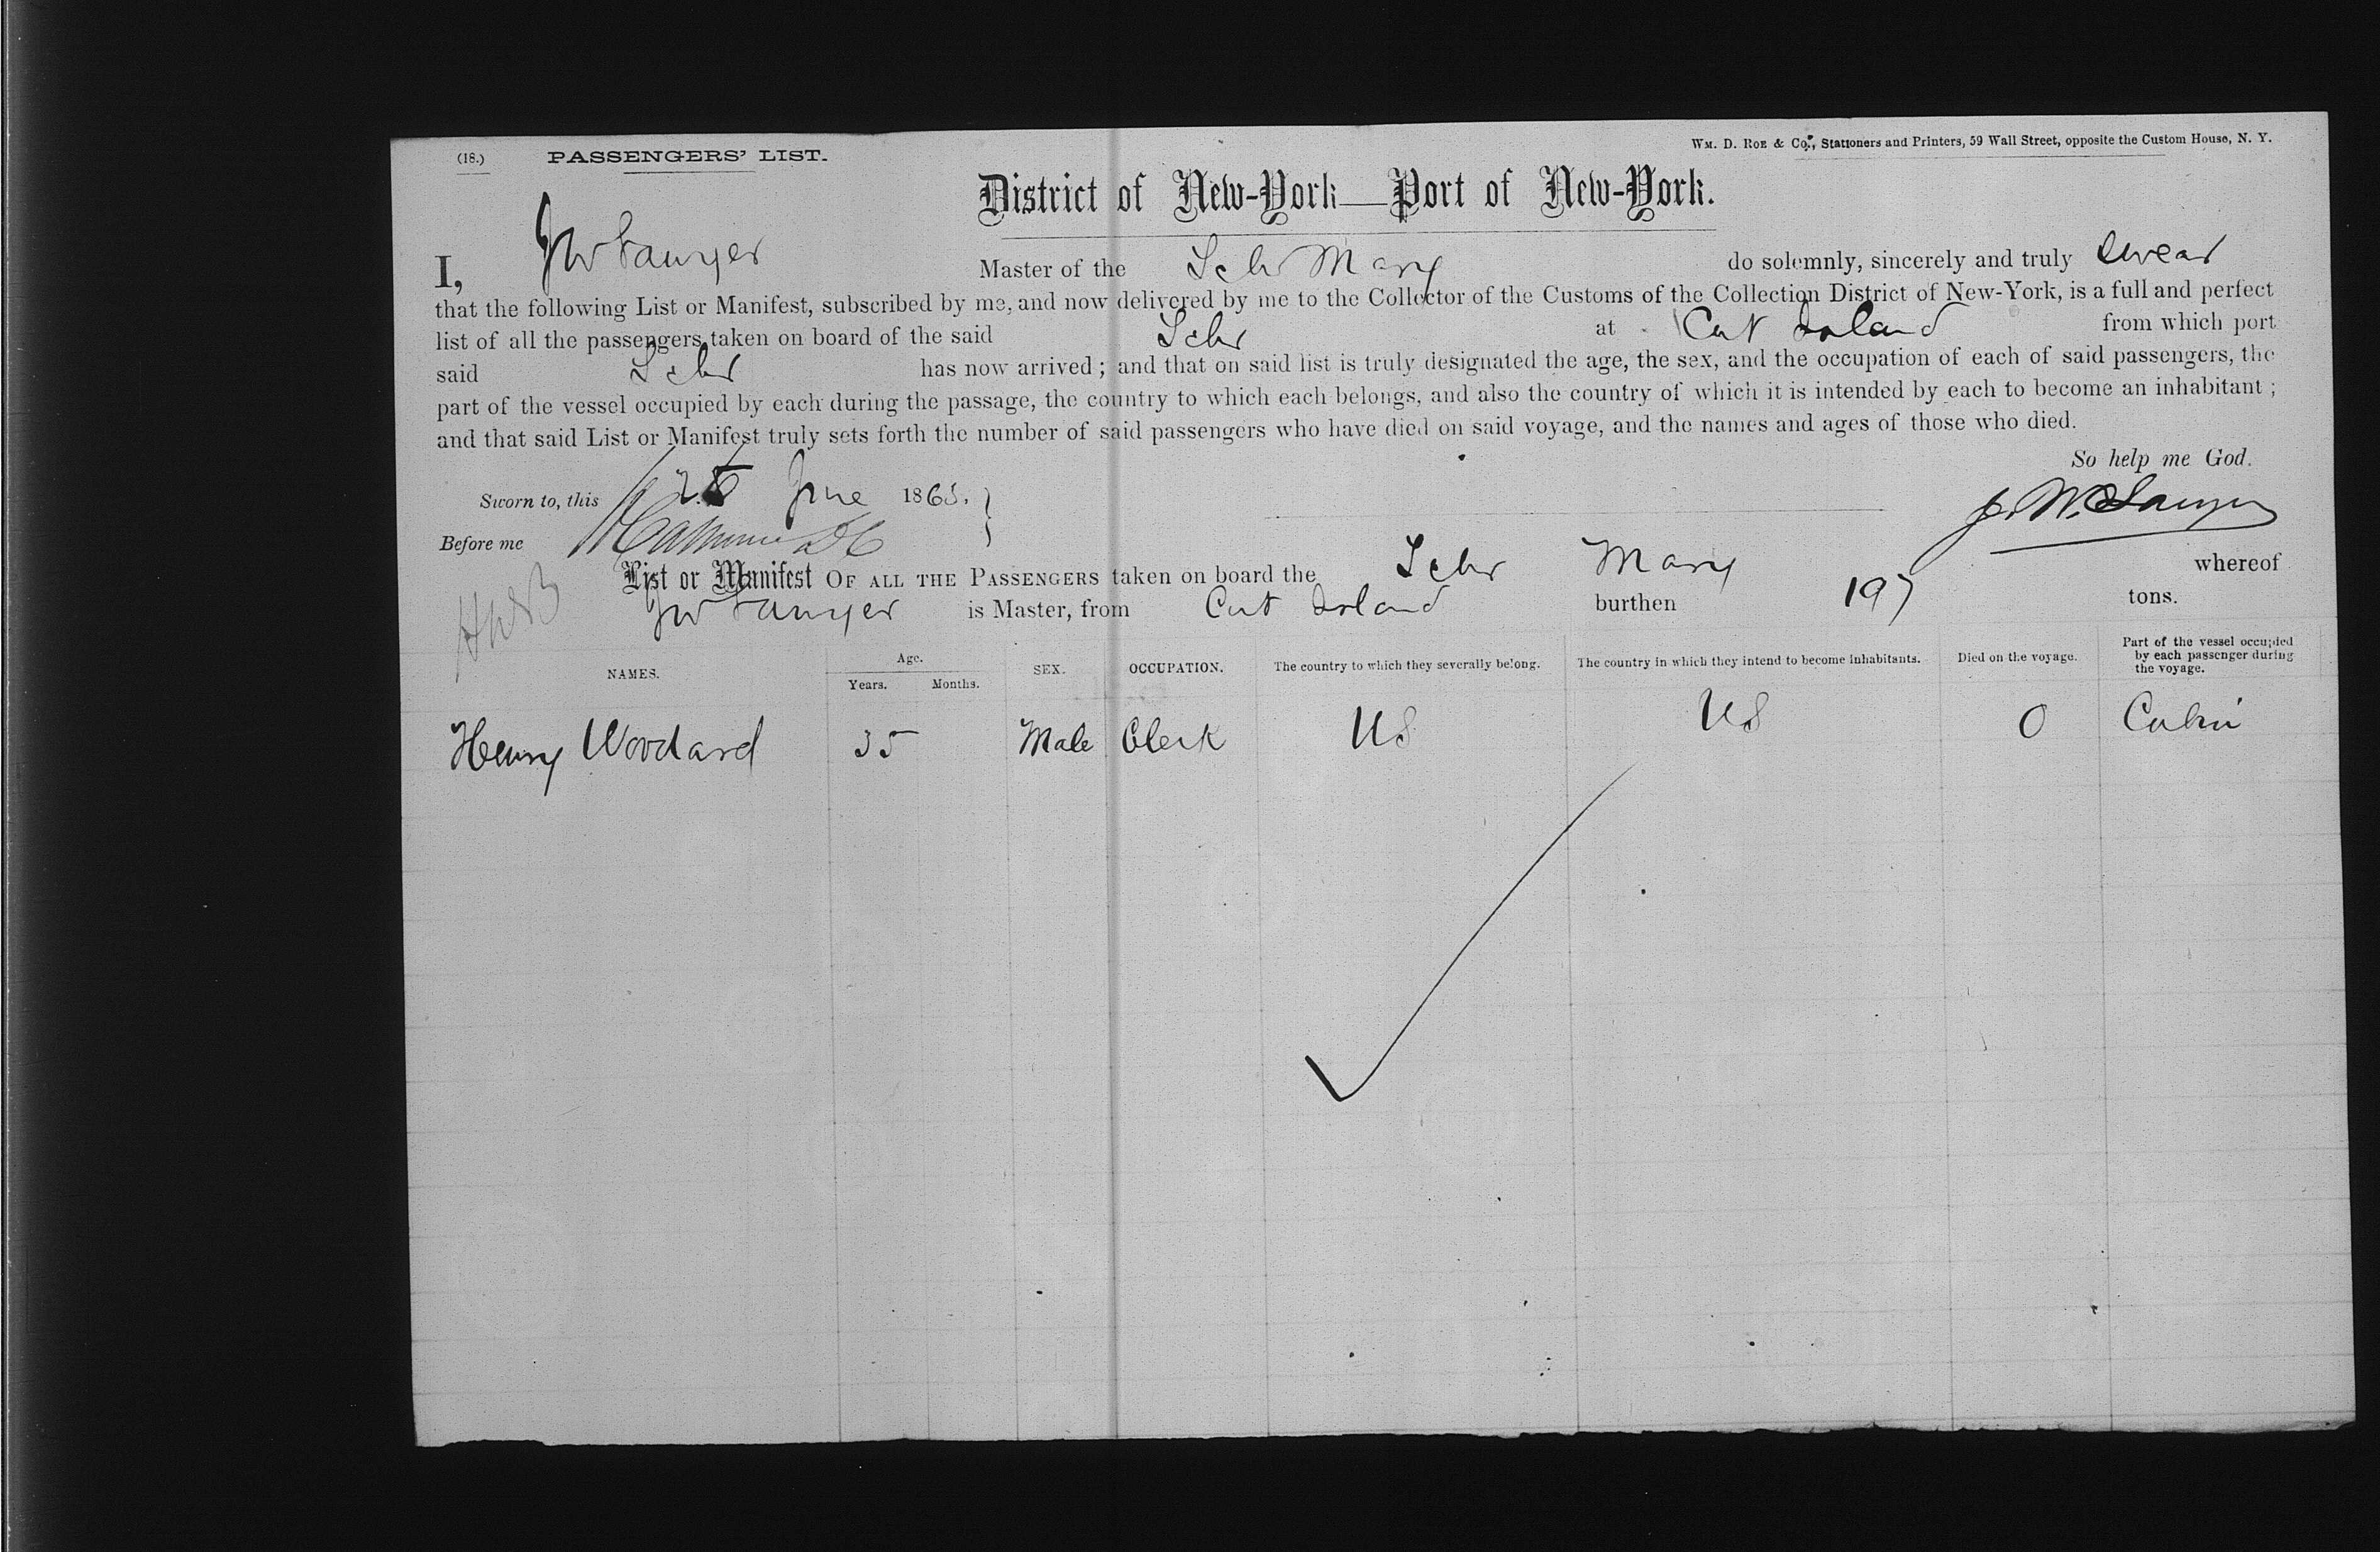 (18.) PASSENGERS' LIST. WM. D. ROE & Co., Stationers and Printers, 59 Wall Street, opposite the Custom House, N. Y.
District of New-York—Port of New-York.
I, JW Sawyer Master of the Schr Mary do solemnly, sincerely and truly swear
that the following List or Manifest, subscribed by me, and now delivered by me to the Collector of the Customs of the Collection District of New-York, is a full and perfect
list of all the passengers taken on board of the said Schr at Cat Island from which port
said Schr has now arrived; and that on said list is truly designated the age, the sex, and the occupation of each of said passengers, the
part of the vessel occupied by each during the passage, the country to which each belongs, and also the country of which it is intended by each to become an inhabitant;
and that said List or Manifest truly sets forth the number of said passengers who have died on said voyage, and the names and ages of those who died.
So help me God.
Sworn to, this June 1865. J. W. Sawyer
Before me
List or Manifest OF ALL THE PASSENGERS taken on board the Schr Mary whereof
JW Sawyer is Master, from Cat Island burthen 197 tons.
NAMES. Age. Years. Months. SEX. OCCUPATION. The country to which they severally belong. The country in which they intend to become inhabitants. Died on the voyage. Part of the vessel occupied by each passenger during the voyage.
Henry Woodard 35 Male Clerk US US 0 Cabin